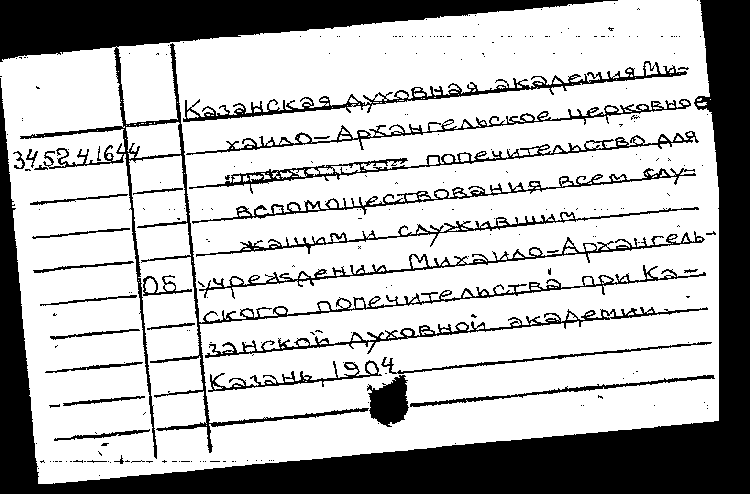 Казанская духовная академия Ми-
хаило-Архангельское церковное
34.52.4.1644
приходское попечительство для
вспомоществования всем слу-
жащим и служившим
Об учреждении Михаило-Архангель-
ского попечительства при Ка-
занской духовной академии.
Казань, 1904.